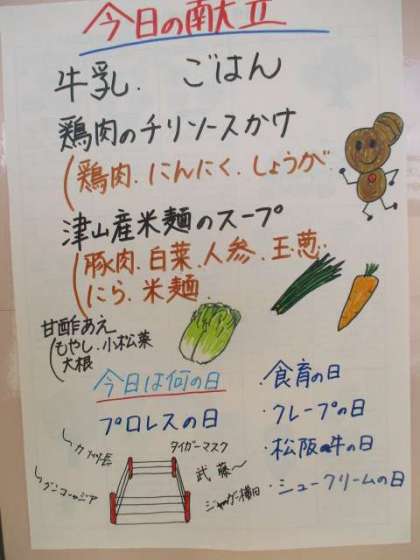 今日の献立
牛乳. ごはん
鶏肉のチリソースかけ
(鶏肉.にんにく.しょうが
津山産米麺のスープ
(豚肉.白菜.人参.玉葱
にら.米麺
甘酢あえ
(もやし.小松菜
大根
今日は何の日
プロレスの日
タイガーマスク
武藤〜
ジャガー横田
・食育の日
・クレープの日
・松阪牛の日
・シュークリームの日